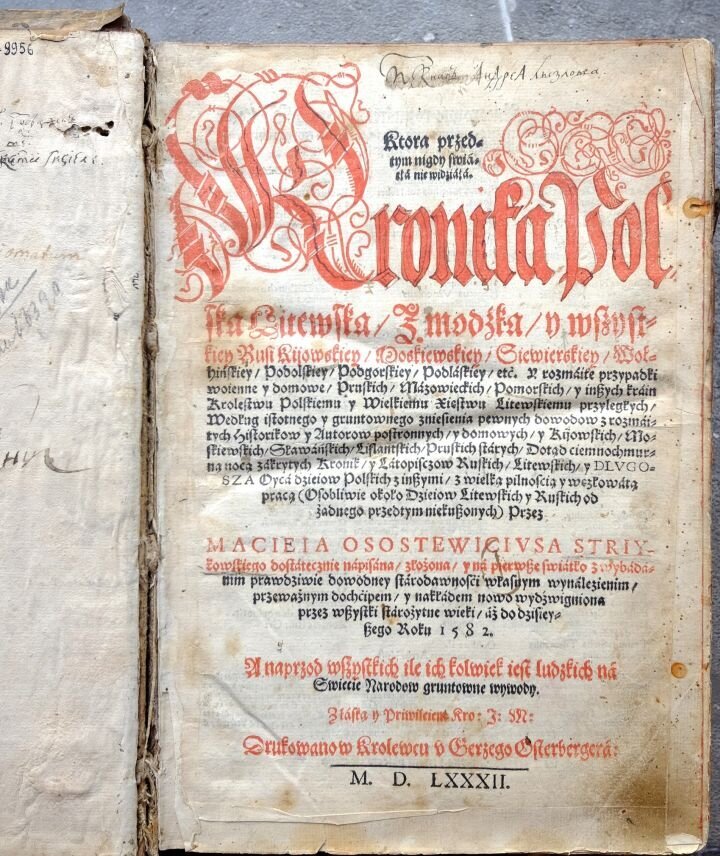 9956
Ktora przed⸗
tym nigdy świá⸗
tłá nie widziáłá.
Kronika Pol
ska Litewska / Żmodźka / y wszyst⸗
kiey Rusi Kijowskiey / Moskiewskiey / Siewierskiey / Woł⸗
hińskiey / Podolskiey / Podgorskiey / Podláskiey / etc. Y rozmáite przypadki
woienne y domowe / Pruskich / Mázowieckich / Pomorskich / y inszych kráin
Krolestwu Polskiemu y Wielkiemu Xięstwu Litewskiemu przyległych /
Według istotnego y gruntownego zniesienia pewnych dowodow z rozmái⸗
tych Historikow y Autorow postronnych / y domowych / y Kijowskich / Mo⸗
skiewskich / Sławáńskich / Liflantskich / Pruskich stárych / Dotąd ciemnochmur⸗
ną nocą zákrytych Kronik / y Látopiszczow Ruskich / Litewskich / y DLVGO⸗
SZA Oycá dzieiow Polskich z inszymi / z wielką pilnością y węzłowátą
pracą (Osobliwie około Dzieiow Litewskich y Ruskich od
żadnego przedtym niekuszonych) Przez
MACIEIA OSOSTEWICIVSA STRIY⸗
kowskiego dostátecznie nápisána / złożona / y ná pierwsze światło z wybáda⸗
nim prawdziwie dowodney stárodawności własnym wynálezienim /
przeważnym dochćipem / y nakłádem nowo wydźwigniona
przez wszystki stárożytne wieki / áż do dzisiey⸗
szego Roku 1582.
A naprzod wszystkich ile ich kolwiek iest ludzkich ná
Swiecie Narodow gruntowne wywody.
Z łáską y Priwileiem Kro: J: M:
Drukowano w Krolewcu v Gerzego Osterbergerá:
M. D. LXXXII.